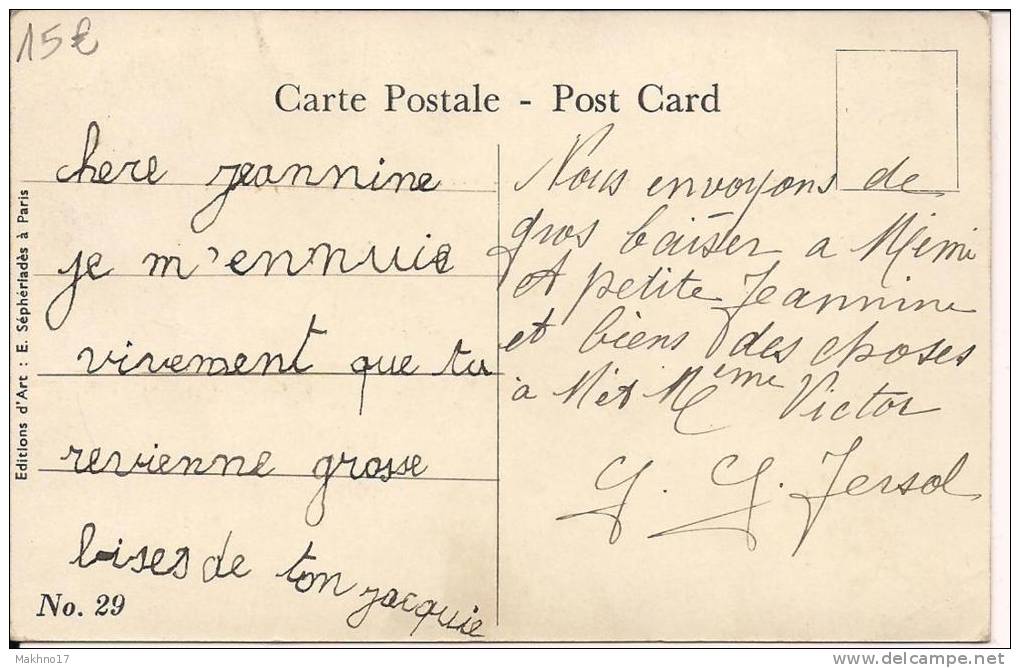 15€
Carte Postale - Post Card
chere jeannine
je m'ennuie
vivement que tu
revienne grosse
bises de ton jacquie
No. 29
Editions d'Art : E. Séphériadès à Paris
Nous envoyons de
gros baiser a Mimi
et petite Jeannine
et biens des choses
à M et Mème Victor
G. G. Jersol
Makhno17
delcampe.net